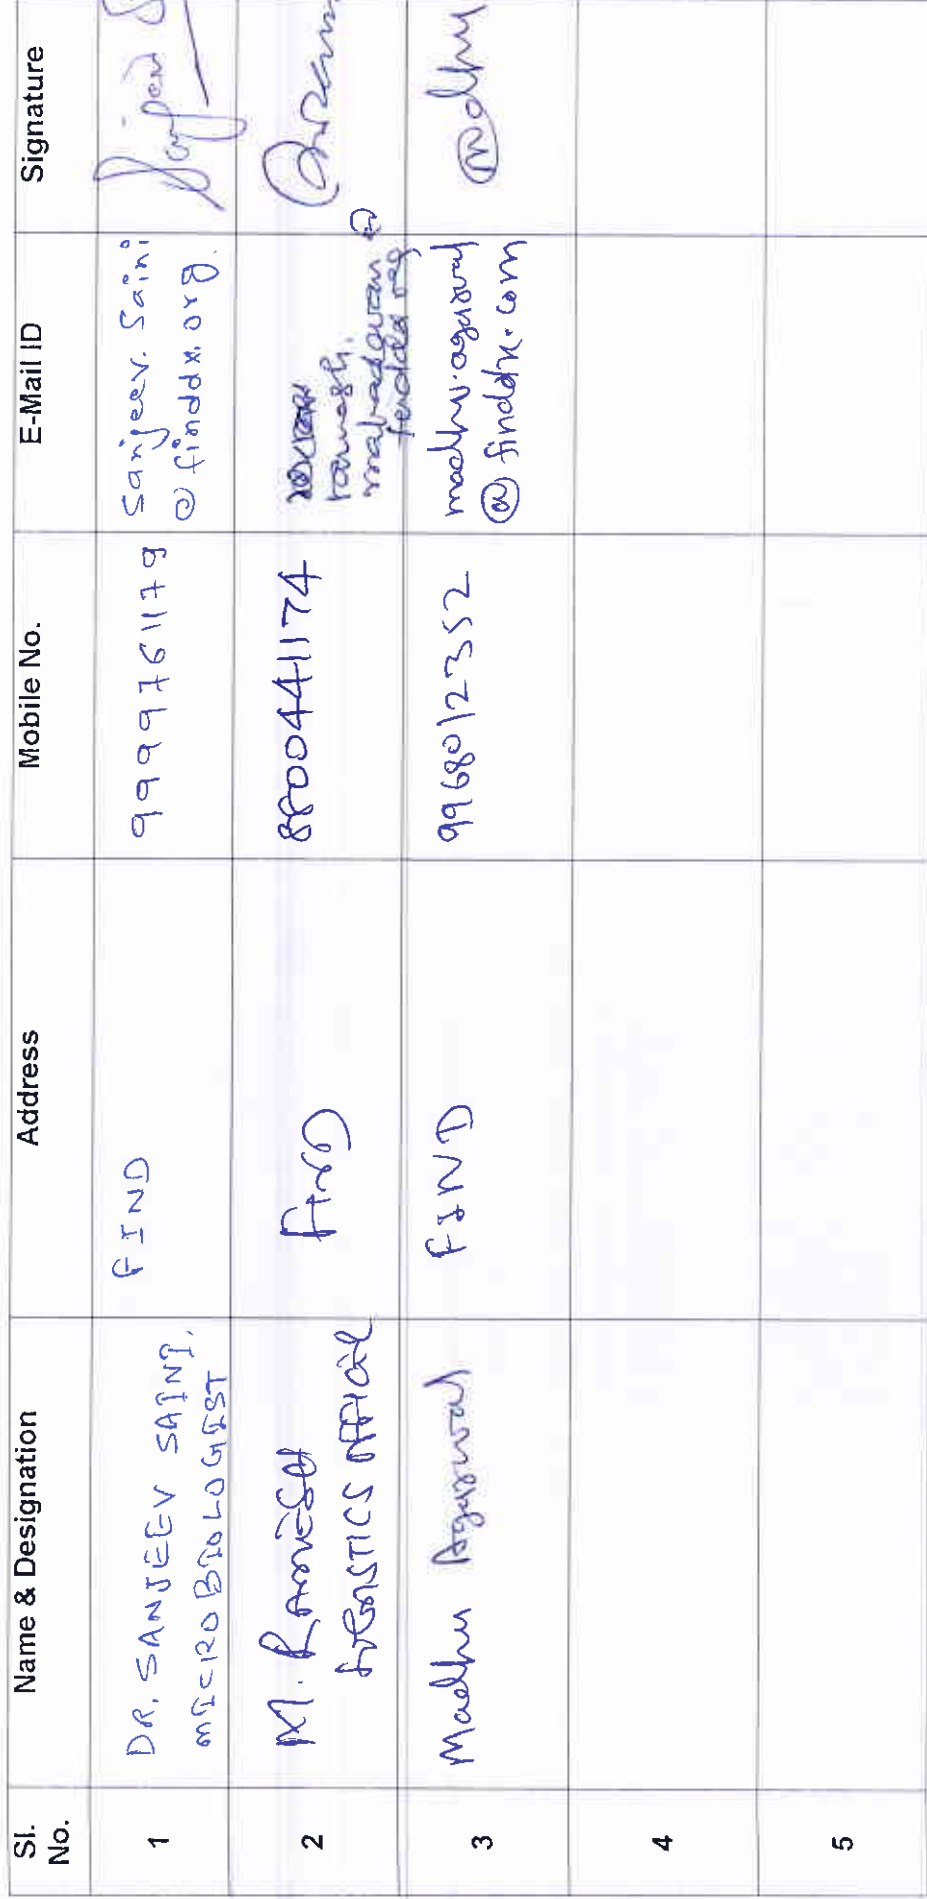 Sl. No.
Name & Designation
Address
Mobile No.
E-Mail ID
Signature
1
DR. SANJEEV SAINI,
MICROBIOLOGIST
FIND
9999761179
Sanjeev. Saini
@ finddx. org.
2
M. RAMESH
OFFICER
FIND
8800441174
ramesh.
3
Madhu Agarwal
FIND
9968012352
madhu.agarwal
@ finddx.com
Madhu
4
5